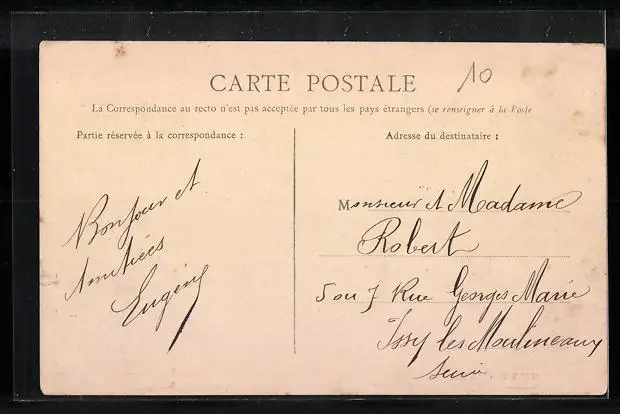 10
CARTE POSTALE
La Correspondance au recto n'est pas acceptée par tous les pays étrangers (se renseigner à la Poste
Partie réservée à la correspondance :
Bonjour et
Amitiées
Eugène
Adresse du destinataire :
Monsieur et Madame
Robert
5 ou 7 Rue Georges Marie
Issy les Moulineaux
Seine